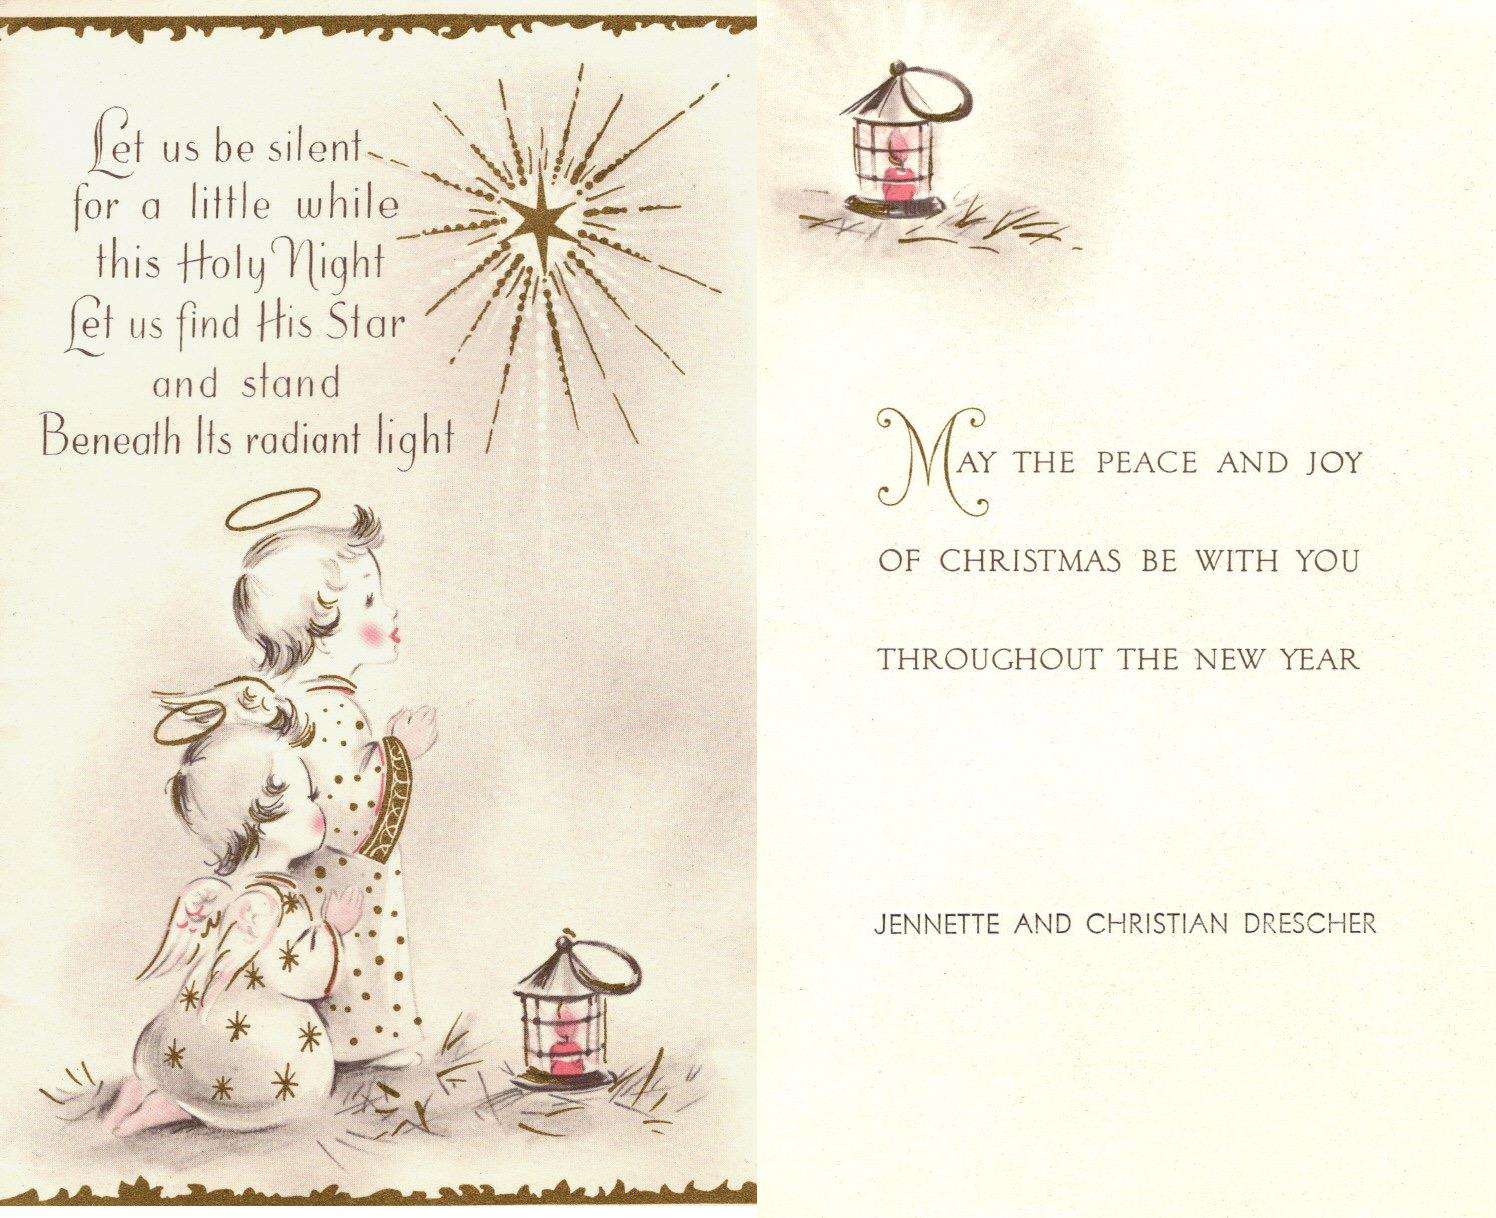 Let us be silent
for a little while
this Holy Night
Let us find His Star
and stand
Beneath Its radiant light
MAY THE PEACE AND JOY
OF CHRISTMAS BE WITH YOU
THROUGHOUT THE NEW YEAR
JENNETTE AND CHRISTIAN DRESCHER